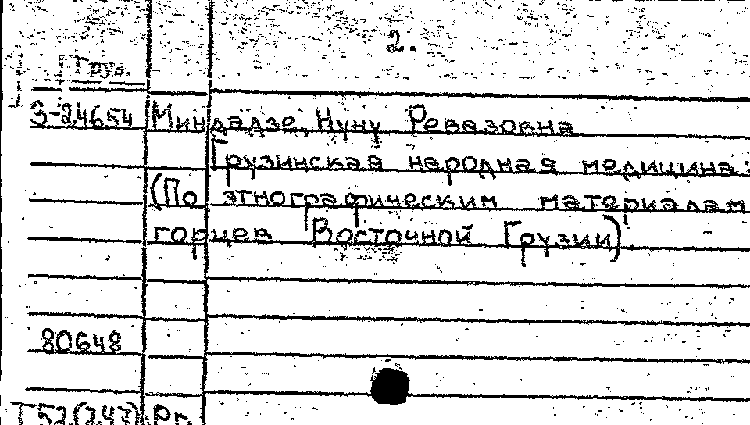 2.
Груз.
З-24654 Миндадзе, Нуну Ревазовна
Грузинская народная медицина:
(По этнографическим материалам
горцев Восточной Грузии).
80648
Т52(243)